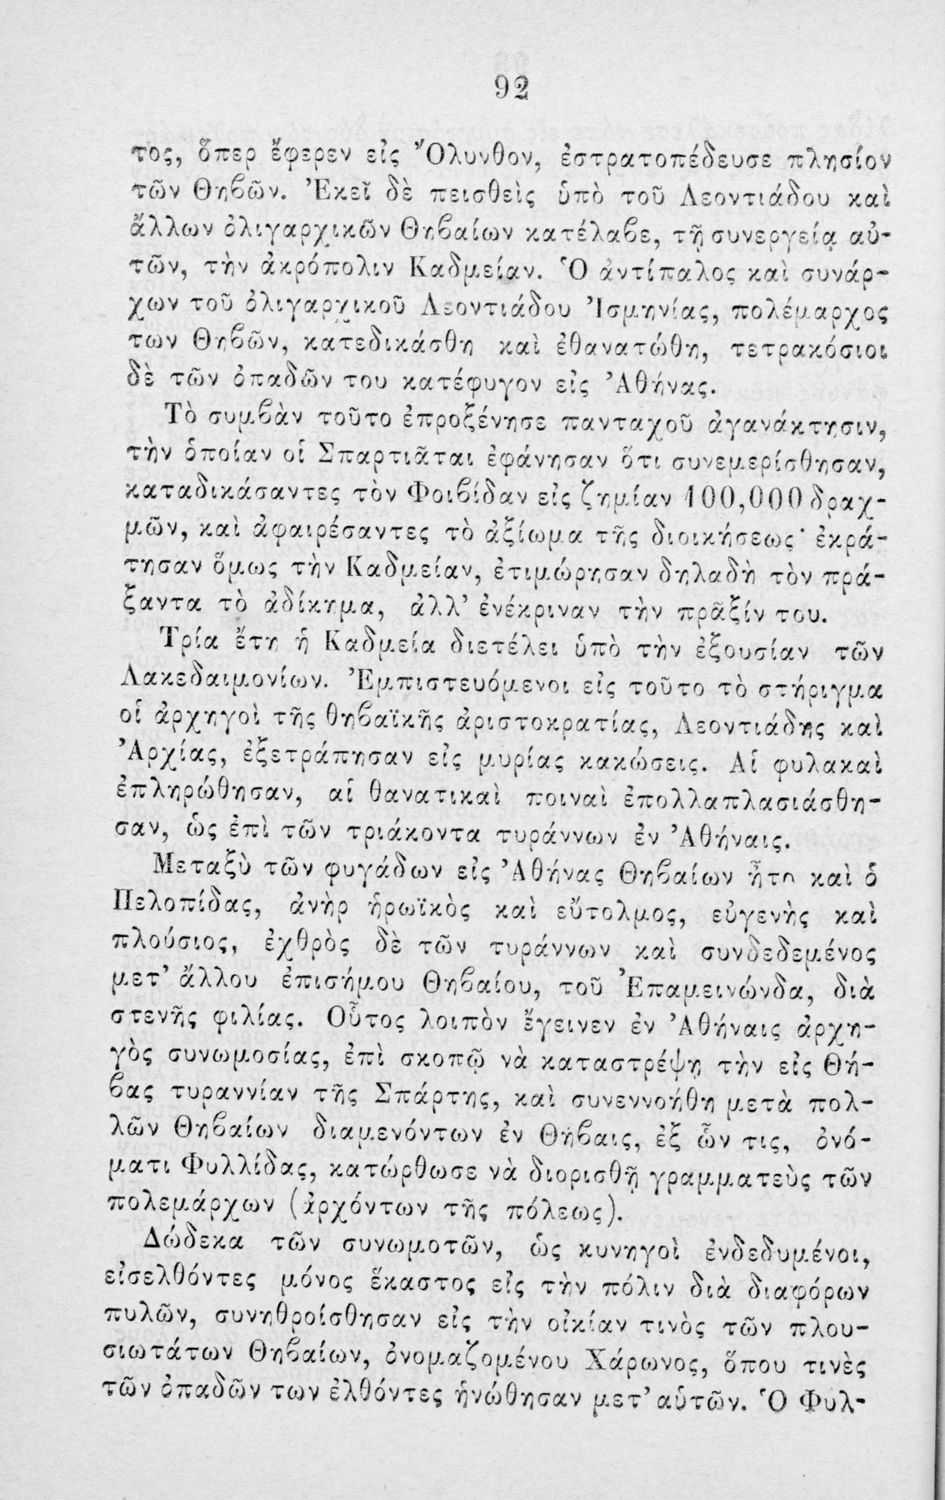 92
τος, ὅπερ ἔφερεν εἰς Ὄλυνθον, ἐστρατοπέδευσε πλησίον
τῶν Θηβῶν. Ἐκεῖ δὲ πεισθεὶς ὑπὸ τοῦ Λεοντιάδου καὶ
ἄλλων ὀλιγαρχικῶν Θηβαίων κατέλαβε, τῇ συνεργείᾳ αὐ-
τῶν, τὴν ἀκρόπολιν Καδμείαν. Ὁ ἀντίπαλος καὶ συνάρ-
χων τοῦ ὀλιγαρχικοῦ Λεοντιάδου Ἰσμηνίας, πολέμαρχος
των Θηβῶν, κατεδικάσθη καὶ ἐθανατώθη, τετρακόσιοι
δὲ τῶν ὀπαδῶν του κατέφυγον εἰς Ἀθήνας.
Τὸ συμβὰν τοῦτο ἐπροξένησε πανταχοῦ ἀγανάκτησιν,
τὴν ὁποίαν οἱ Σπαρτιᾶται ἐφάνησαν ὅτι συνεμερίσθησαν,
καταδικάσαντες τὸν Φοιβίδαν εἰς ζημίαν 100,000 δραχ-
μῶν, καὶ ἀφαιρέσαντες τὸ ἀξίωμα τῆς διοικήσεως· ἐκρά-
τησαν ὅμως τὴν Καδμείαν, ἐτιμώρησαν δηλαδὴ τὸν πρά-
ξαντα τὸ ἀδίκημα, ἀλλ' ἐνέκριναν τὴν πρᾶξίν του.
Τρία ἔτη ἡ Καδμεία διετέλει ὑπὸ τὴν ἐξουσίαν τῶν
Λακεδαιμονίων. Ἐμπιστευόμενοι εἰς τοῦτο τὸ στήριγμα
οἱ ἀρχηγοὶ τῆς θηβαϊκῆς ἀριστοκρατίας, Λεοντιάδης καὶ
Ἀρχίας, ἐξετράπησαν εἰς μυρίας κακώσεις. Αἱ φυλακαὶ
ἐπληρώθησαν, αἱ θανατικαὶ ποιναὶ ἐπολλαπλασιάσθη-
σαν, ὡς ἐπὶ τῶν τριάκοντα τυράννων ἐν Ἀθήναις.
Μεταξὺ τῶν φυγάδων εἰς Ἀθήνας Θηβαίων ἦτο καὶ ὁ
Πελοπίδας, ἀνὴρ ἡρωϊκὸς καὶ εὔτολμος, εὐγενὴς καὶ
πλούσιος, ἐχθρὸς δὲ τῶν τυράννων καὶ συνδεδεμένος
μετ' ἄλλου ἐπισήμου Θηβαίου, τοῦ Ἐπαμεινώνδα, διὰ
στενῆς φιλίας. Οὗτος λοιπὸν ἔγεινεν ἐν Ἀθήναις ἀρχη-
γὸς συνωμοσίας, ἐπὶ σκοπῷ νὰ καταστρέψῃ τὴν εἰς Θή-
βας τυραννίαν τῆς Σπάρτης, καὶ συνεννοήθη μετὰ πολ-
λῶν Θηβαίων διαμενόντων ἐν Θήβαις, ἐξ ὧν τις, ὀνό-
ματι Φυλλίδας, κατώρθωσε νὰ διορισθῇ γραμματεὺς τῶν
πολεμάρχων (ἀρχόντων τῆς πόλεως).
Δώδεκα τῶν συνωμοτῶν, ὡς κυνηγοὶ ἐνδεδυμένοι,
εἰσελθόντες μόνος ἕκαστος εἰς τὴν πόλιν διὰ διαφόρων
πυλῶν, συνηθροίσθησαν εἰς τὴν οἰκίαν τινὸς τῶν πλου-
σιωτάτων Θηβαίων, ὀνομαζομένου Χάρωνος, ὅπου τινὲς
τῶν ὀπαδῶν των ἐλθόντες ἡνώθησαν μετ' αὐτῶν. Ὁ Φυλ-